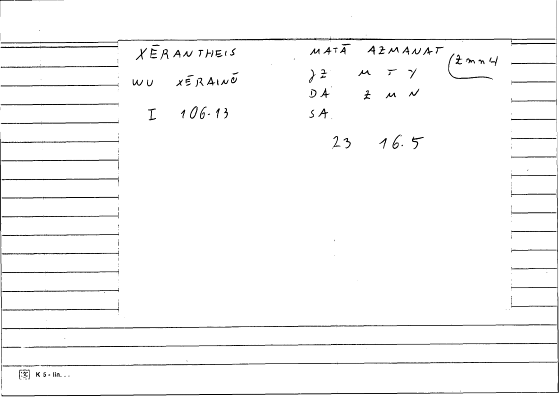 XĒRANTHEIS
WU XĒRAINŌ
I 106.13
MATĀ AZMANAT
JZ M T Y
DA Z M N
SA
23 16.5
K 5 - lin. . .